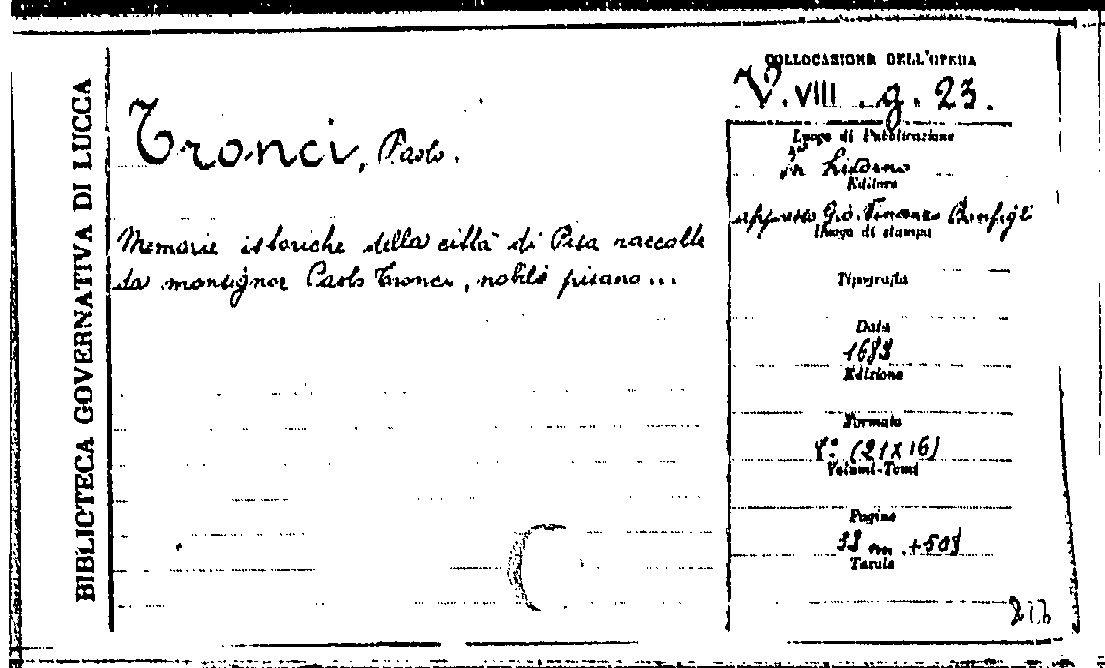 BIBLIOTECA GOVERNATIVA DI LUCCA
Tronci, Paolo.
Memorie istoriche della città di Pisa raccolte
da monsignor Paolo Tronci, nobile pisano...
COLLOCAZIONE DELL'OPERA
V. VIII . g. 23.
Luogo di Pubblicazione
In Livorno
Editore
appresso Gio. Vincenzo Bonfigli
Luogo di stampa
Tipografia
Data
1682
Edizione
Formato
(21x16)
Volumi-Tomi
Pagine
+508
Tavole